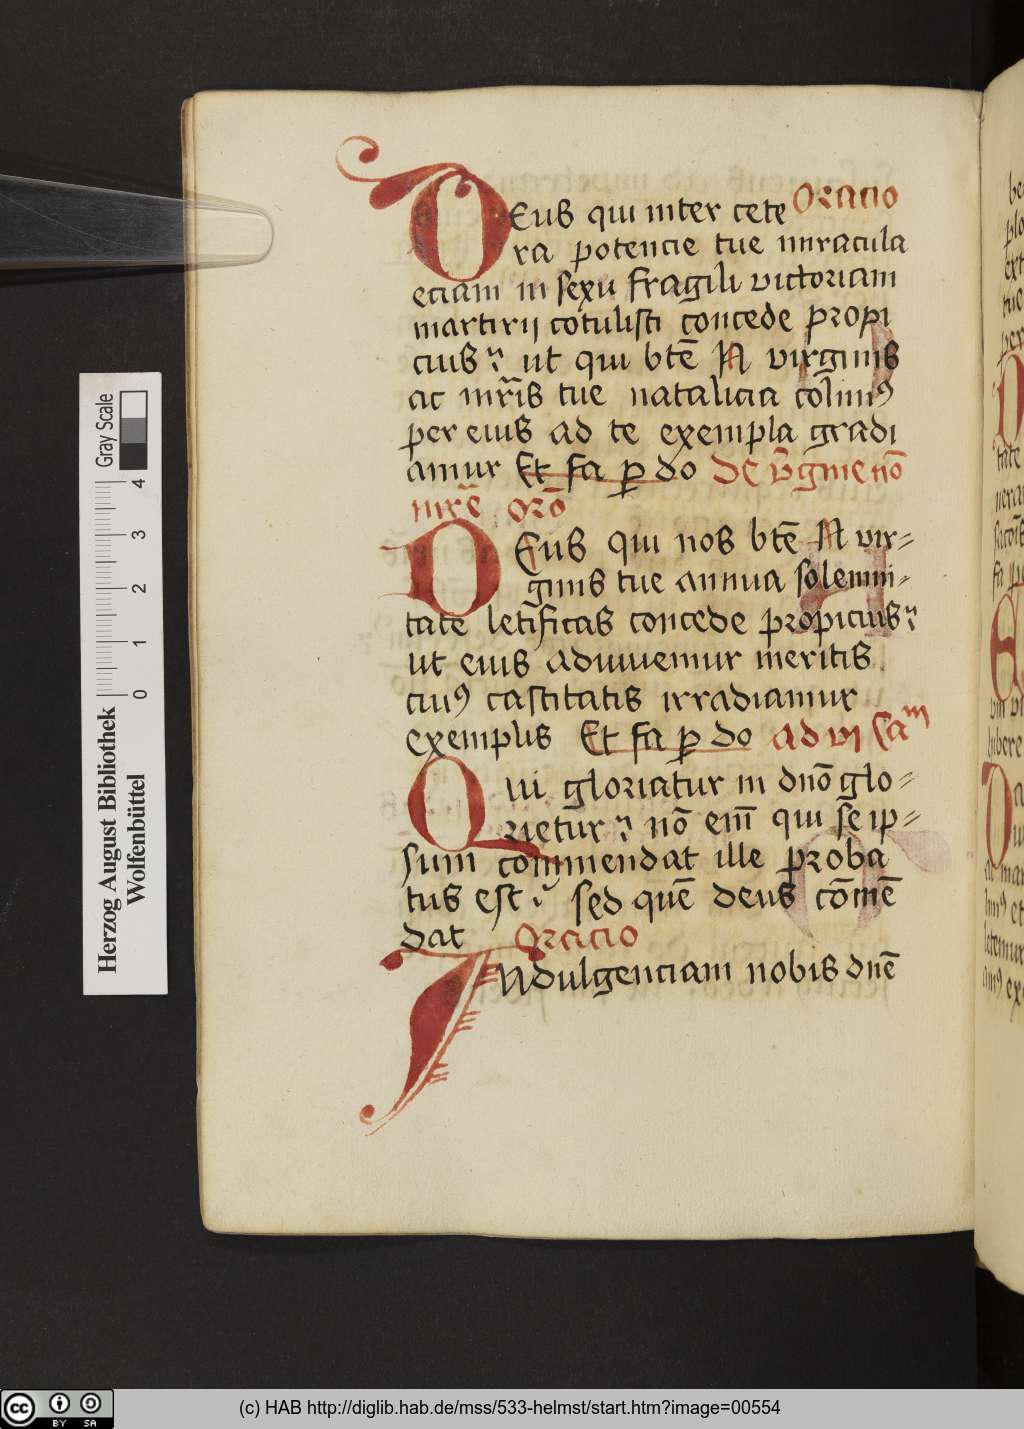 Deus qui inter cete Oracio
ra potencie tue miracula
eciam in sexu fragili victoriam
martirij cotulisti concede propi
cius ut qui btē N virginis
ac mr̄is tue natalicia colim9
per eius ad te exempla gradi
amur Et fa ꝑ do De v̄gine nō
mr̄e orō
Deus qui nos btē N vir⸗
ginis tue annua solemni⸗
tate letificas concede propicius
ut eius adiuuemur meritis
cui9 castitatis irradiamur
exemplis Et fa ꝑ do ad vj Cam
Qui gloriatur in dnō glo⸗
rietur nō enī qui se ip⸗
sum commendat ille proba
tus est sed quē deus cōmē
dat Oracio
Indulgenciam nobis dnē
Gray Scale
0 1 2 3 4
Herzog August Bibliothek
Wolfenbüttel
cc BY SA
(c) HAB http://diglib.hab.de/mss/533-helmst/start.htm?image=00554